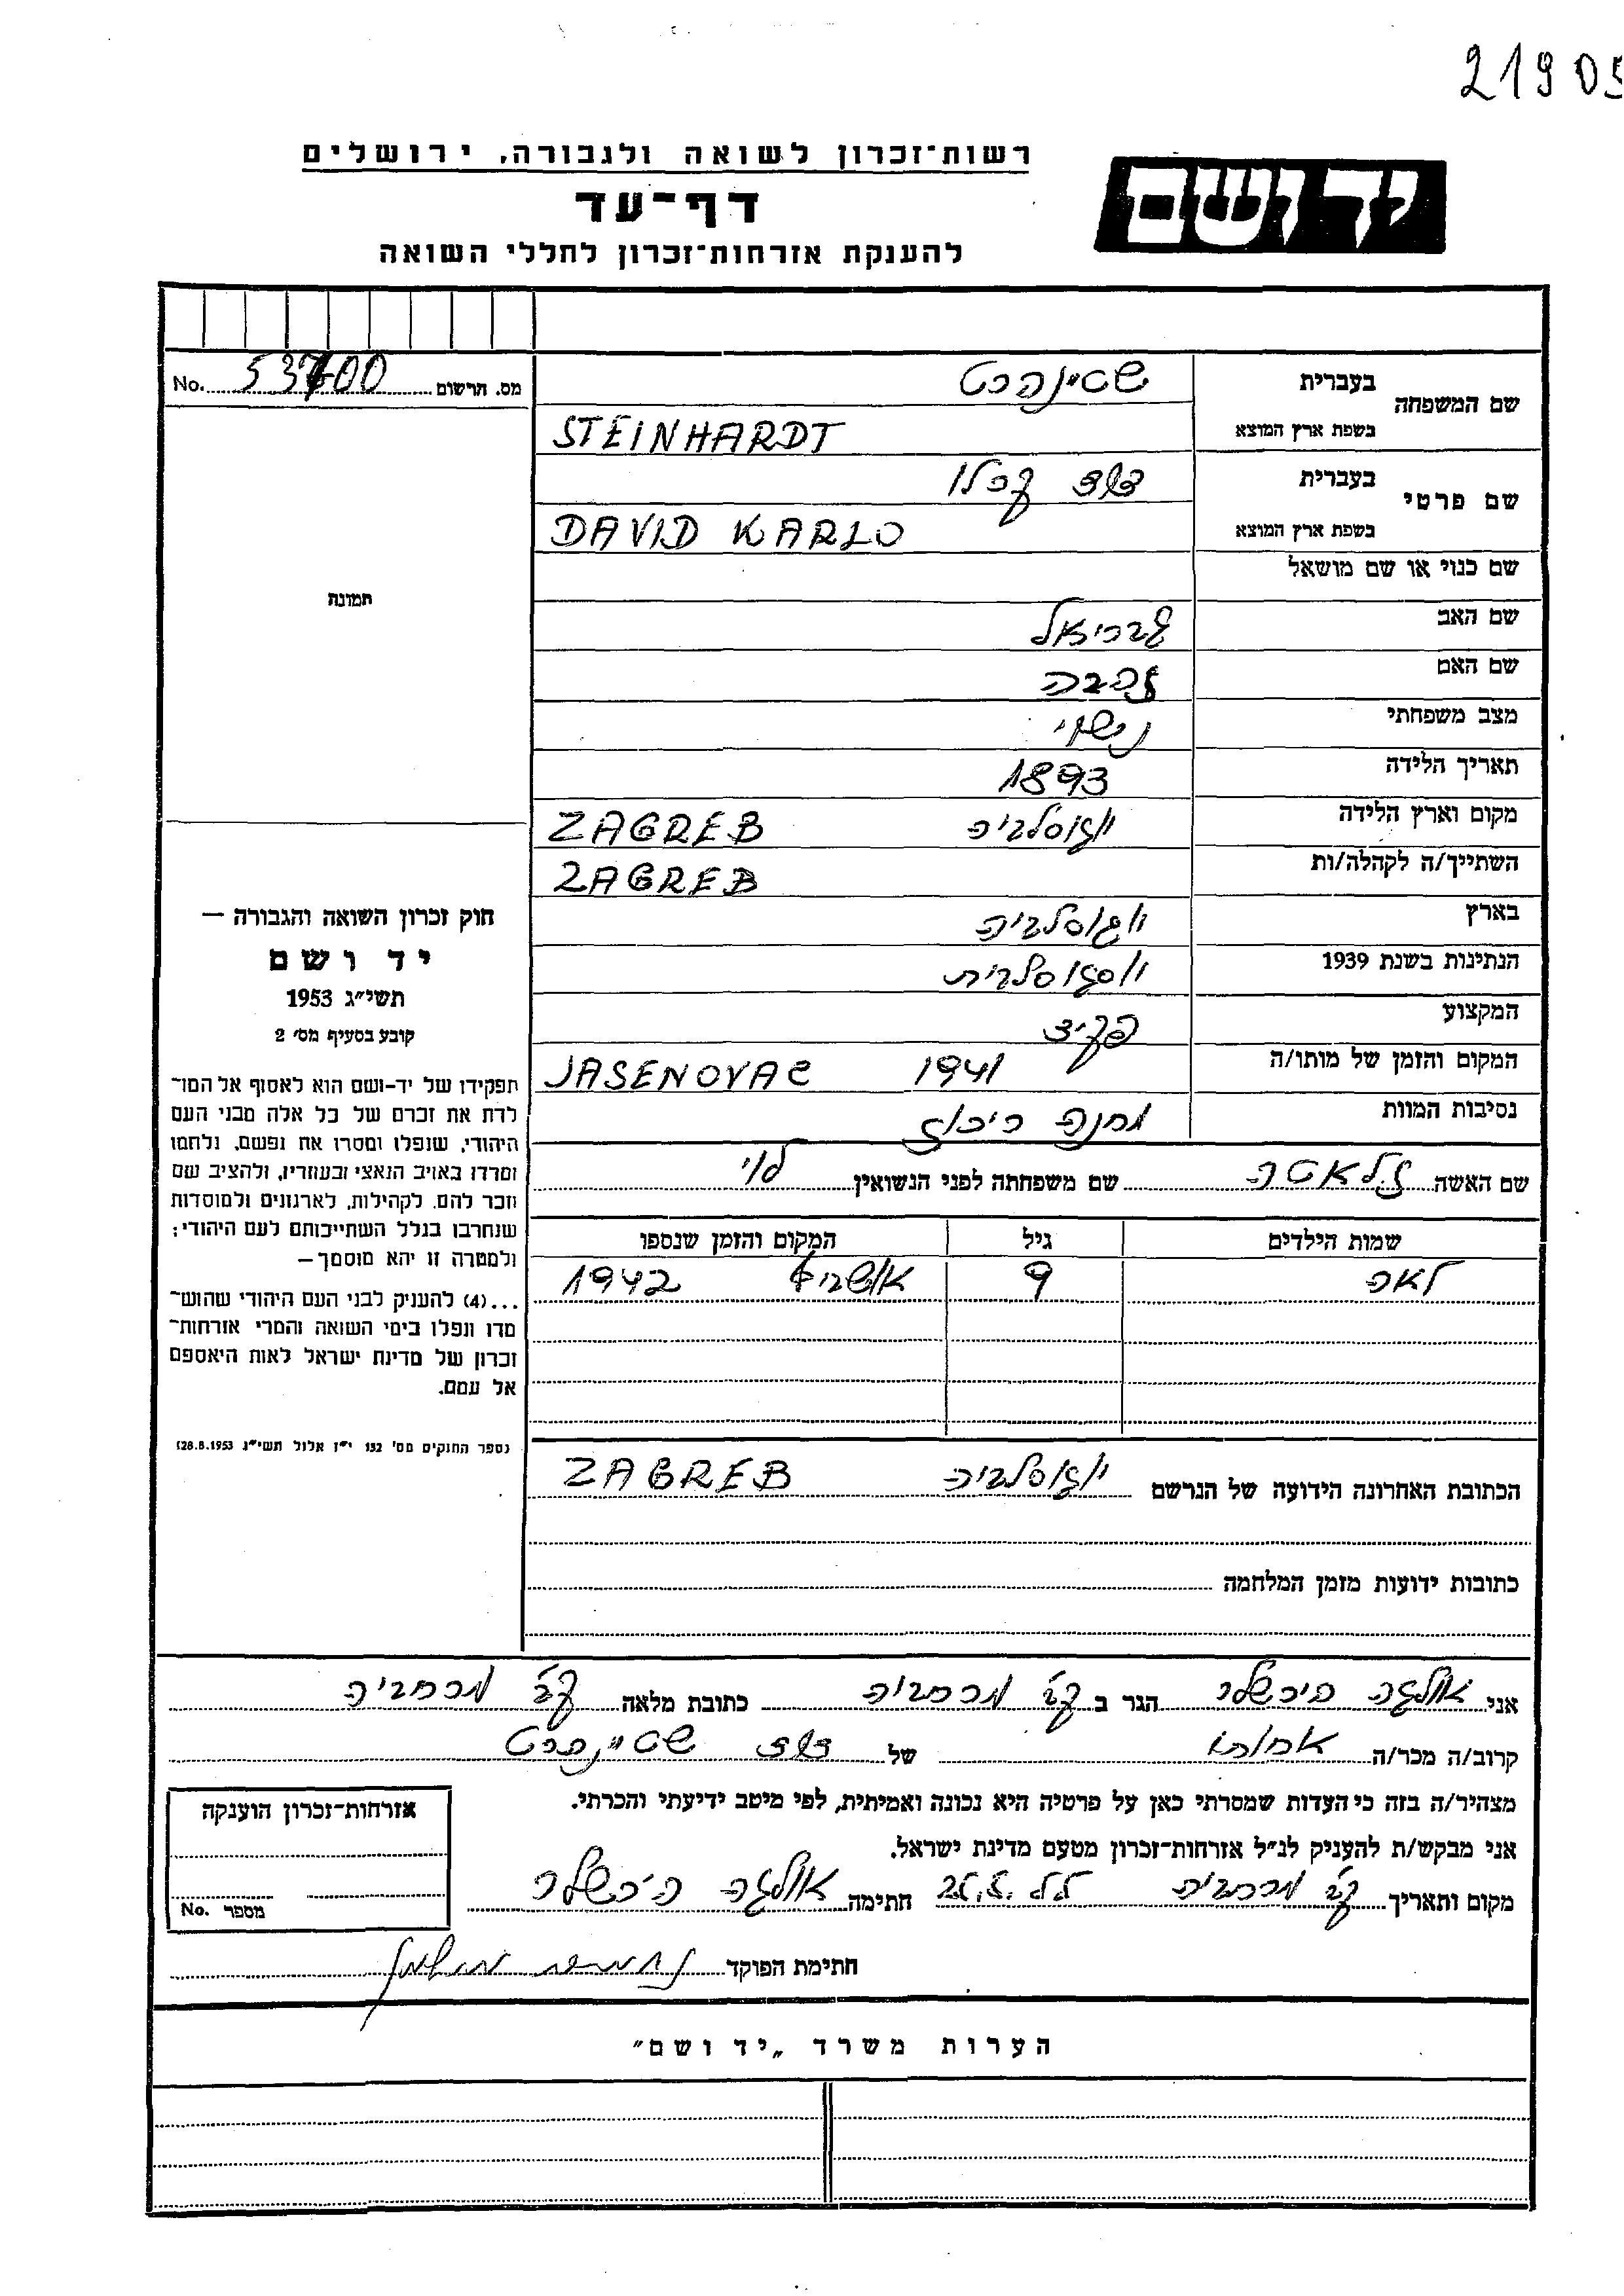 21905
רשות־זכרון לשואה ולגבורה, ירושלים
יד ושם
דף־עד
להענקת אזרחות־זכרון לחללי השואה
מס. תרשום No. 53700
תמונה
שם המשפחה בעברית שטיינהרט
בשפת ארץ המוצא STEINHARDT
שם פרטי בעברית דוד קרלו
בשפת ארץ המוצא DAVID KARLO
שם כנוי או שם מושאל
שם האב גבריאל
שם האם זהבה
מצב משפחתי נישוי
תאריך הלידה 1893
מקום וארץ הלידה יוגוסלביה ZAGREB
השתייך/ה לקהלה/ות ZAGREB
בארץ יוגוסלביה
הנתינות בשנת 1939
המקצוע פקיד
המקום והזמן של מותו/ה 1941 JASENOVAC
נסיבות המוות מחנה ריכוז
שם האשה זלאטה שם משפחתה לפני הנשואין לוי
שמות הילדים גיל המקום והזמן שנספו
לאה 9 אושביץ 1942
הכתובת האחרונה הידועה של הנרשם יוגוסלביה ZAGREB
כתובות ידועות מזמן המלחמה
חוק זכרון השואה והגבורה —
יד ושם
תשי״ג 1953
קובע בסעיף מס׳ 2
תפקידו של יד־ושם הוא לאסוף אל המו־
לדת את זכרם של כל אלה מבני העם
היהודי, שנפלו ומסרו את נפשם, נלחמו
ומרדו באויב הנאצי ובעוזריו, ולהציב שם
וזכר להם, לקהילות, לארגונים ולמוסדות
שנחרבו בגלל השתייכותם לעם היהודי;
ולמטרה זו יהא מוסמך—
...(4) להענק לבני העם היהודי שהוש־
מדו ונפלו בימי השואה והמרי אזרחות־
זכרון של מדינת ישראל לאות היאספם
אל עמם.
(ספר החוקים מס׳ 132 י״ז אלול תשי״ג 28.8.1953)
אני אולגה הירשלר הגר ב קב׳ מרחביה כתובת מלאה קב׳ מרחביה
קרוב/ה מכר/ה אחותו של דוד שטיינהרט
מצהיר/ה בזה כי העדות שמסרתי כאן על פרטיה היא נכונה ואמיתית, לפי מיטב ידיעתי והכרתי.
אני מבקש/ת להעניק לנ״ל אזרחות־זכרון מטעם מדינת ישראל.
מקום ותאריך קב׳ מרחביה חתימה אולגה הירשלר
חתימת הפוקד
אזרחות־זכרון הוענקה
מספר No.
הערות משרד „יד ושם״